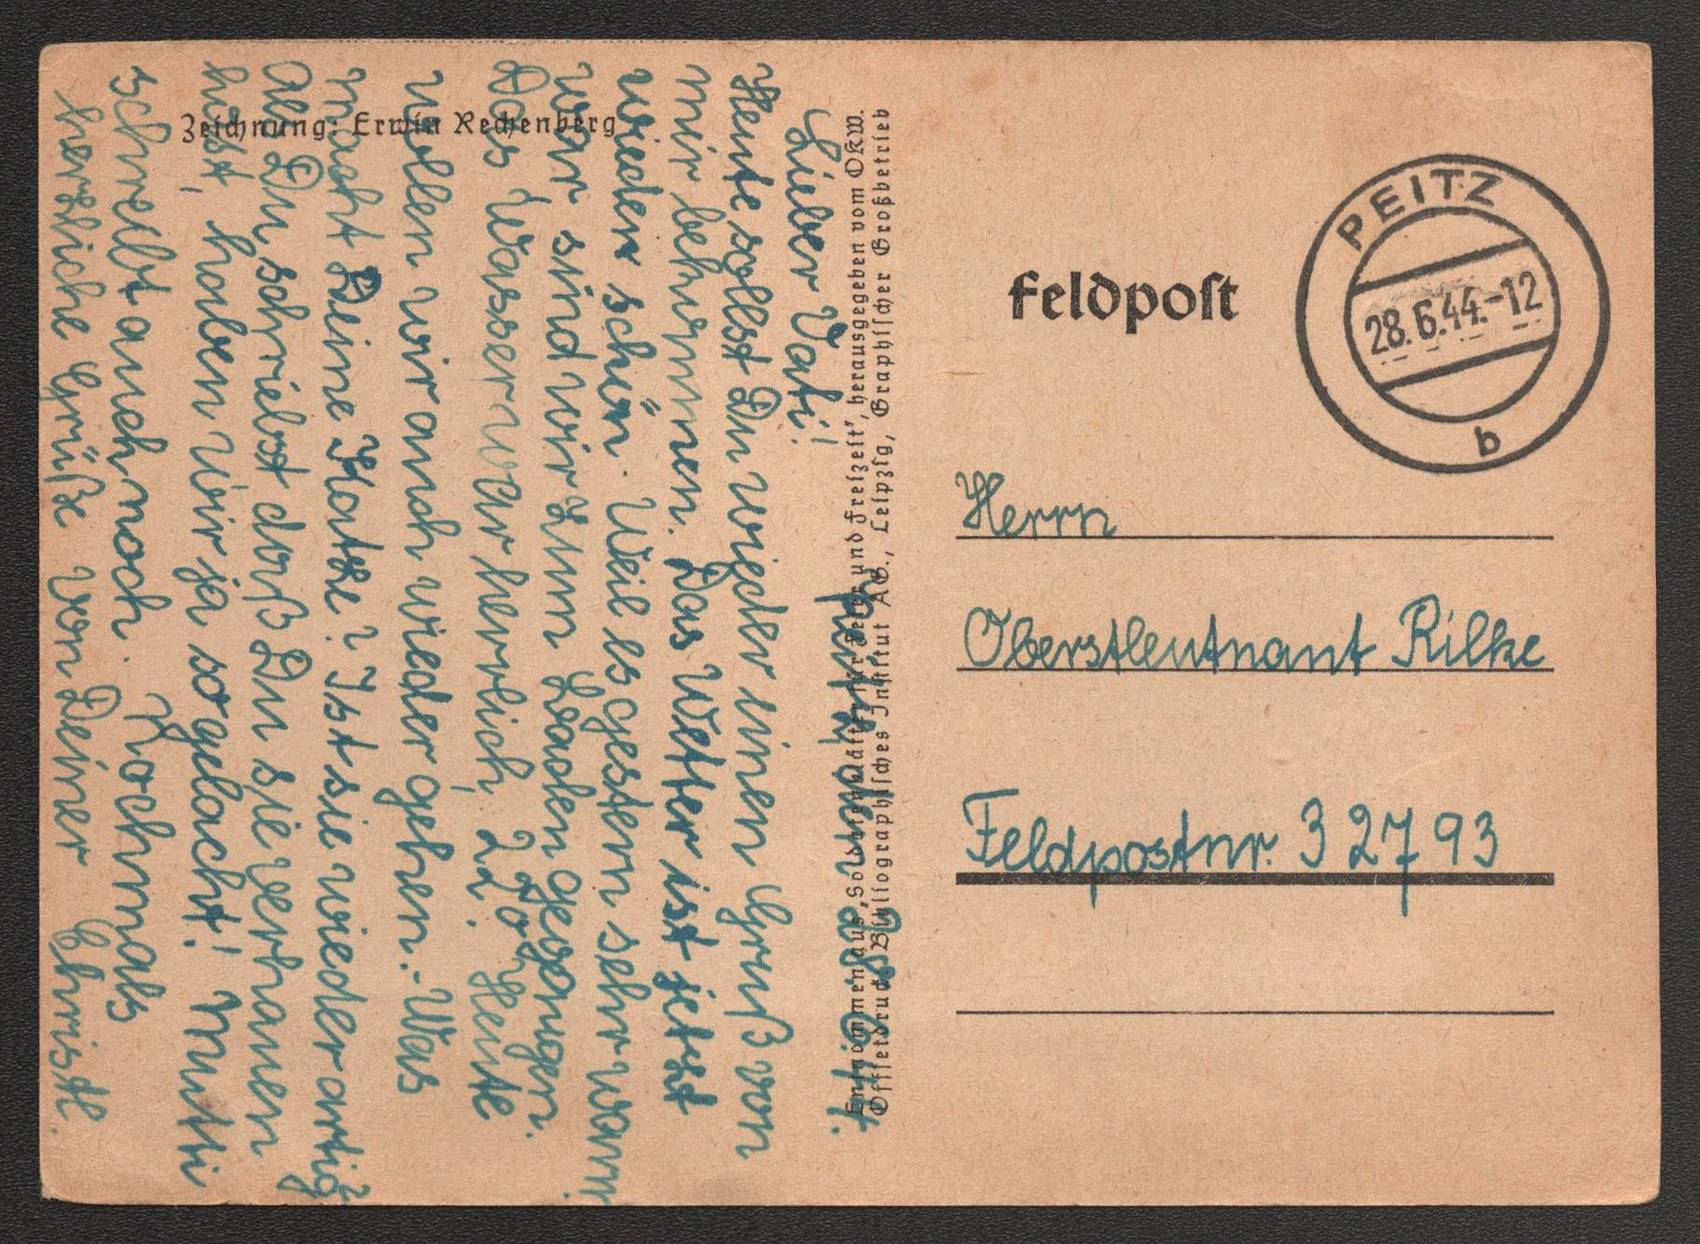 Zeichnung: Erwin Rechenberg
28.6.44.
Lieber Vati!
Heute sollst Du wieder einen Gruß von
mir bekommen. Das Wetter ist jetzt
wieder schön. Weil es gestern sehr warm
war, sind wir zum Baden gegangen.
Das Wasser war herrlich, 22°. Heute
wollen wir auch wieder gehen.- Was
macht Deine Katze? Ist sie wieder artig?
Als Du schriebst daß Du sie verhauen
hast, haben wir ja so gelacht! Mutti
schreibt auch noch. Nochmals
herzliche Grüße von Deiner Christl.
Entnommen aus „Soldatenblätter für Feier und Freizeit“, herausgegeben vom OKW.
Offsetdruck: Bibliographisches Institut AG., Leipzig, Graphischer Großbetrieb
Feldpost
PEITZ
28.6.44.-12
b
Herrn
Oberstleutnant Rilke
Feldpostnr. 32793